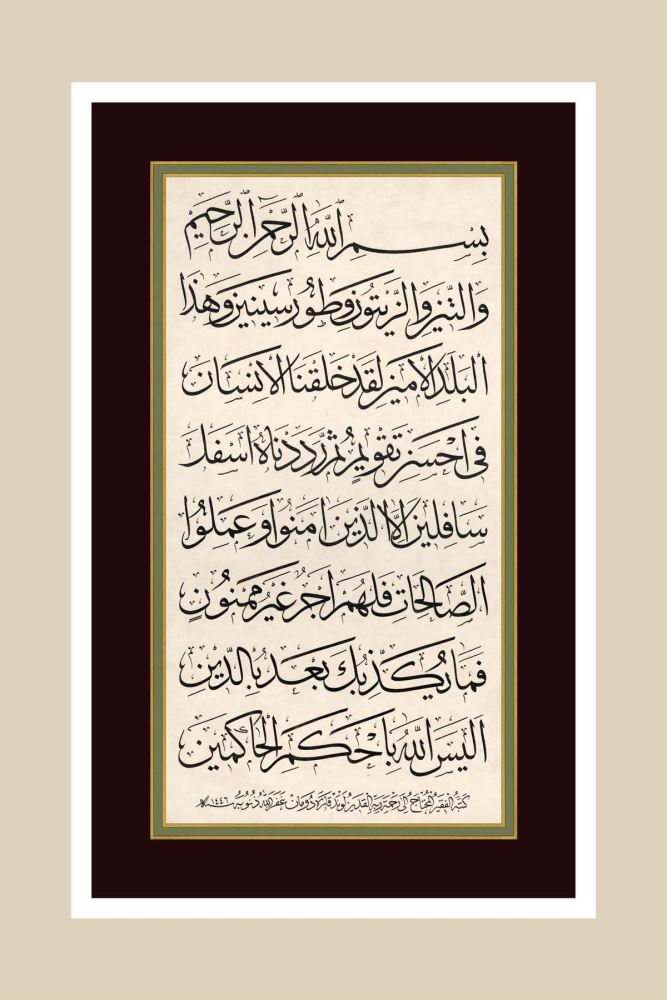 بِسْمِ اللهِ الرَّحْمٰنِ الرَّحِيمِ
وَالتِّينِ وَالزَّيْتُونِ وَطُورِ سِينِينَ وَهٰذَا
الْبَلَدِ الْاَمِينِ لَقَدْ خَلَقْنَا الْاِنْسَانَ
فِى اَحْسَنِ تَقْوِيمٍ ثُمَّ رَدَدْنَاهُ اَسْفَلَ
سَافِلِينَ اِلَّا الَّذِينَ اٰمَنُوا وَعَمِلُوا
الصَّالِحَاتِ فَلَهُمْ اَجْرٌ غَيْرُ مَمْنُونٍ
فَمَا يُكَذِّبُكَ بَعْدُ بِالدِّينِ
اَلَيْسَ اللهُ بِاَحْكَمِ الْحَاكِمِينَ
كتبه الفقير المحتاج الى رحمة ربه القدير لوند قره دومان غفر الله ذنوبه ١٤٤٦